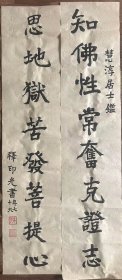 慧淳居士鑑
知佛性常奮克證志
思地獄苦發菩提心
釋印光書